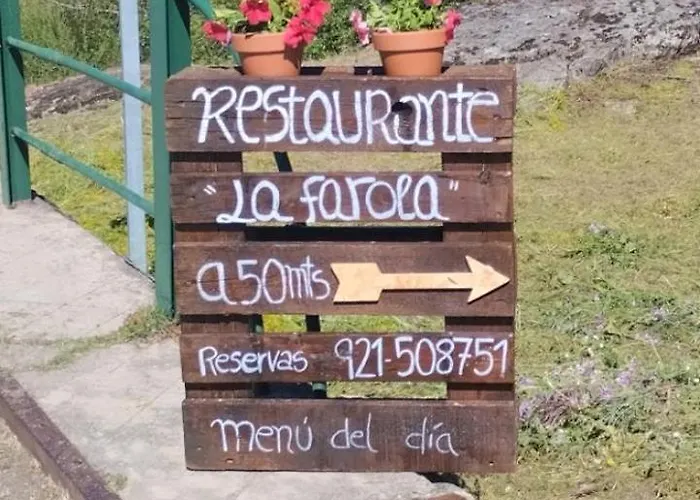 Restaurante
"La farola"
a 50mts
Reservas 921-508751
menú del día